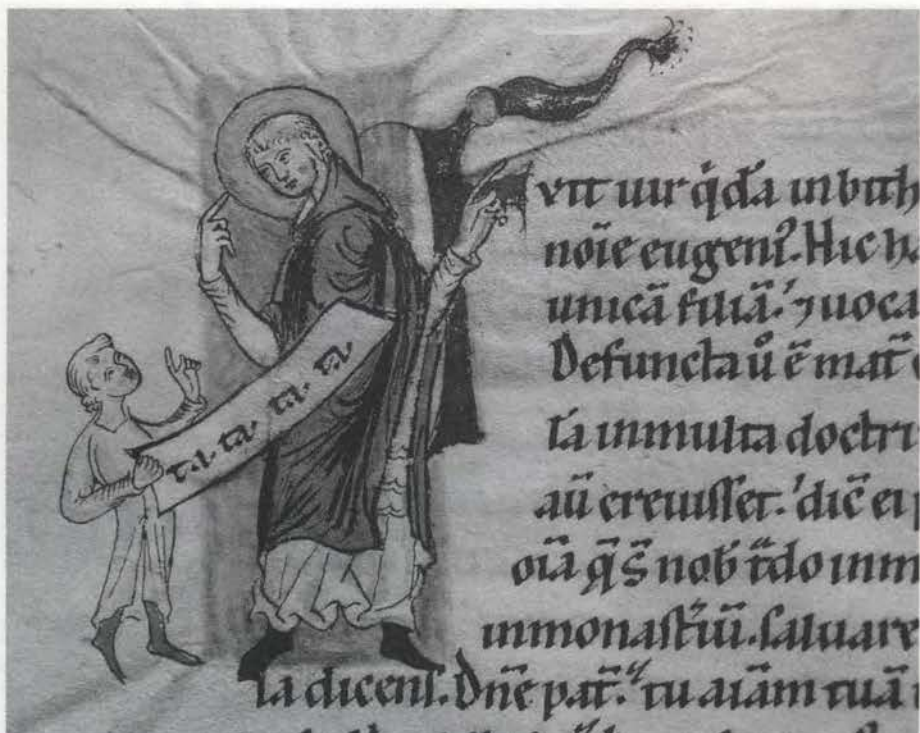 ta. ta. ta. ta.
vit uir q̇dā in bith
nōīe eugenꝰ. Hic h
unicā filiā. ⁊ uoca
Defuncta ū̇ ē mat̄
la in multa doctri
aū creuisset. dic̄ ei
oīa q̄ s̄ nob̄ t̄do in m
in monast̄iū. saluare
la dicens. Dn̄e pat̄. tu aīam tuā